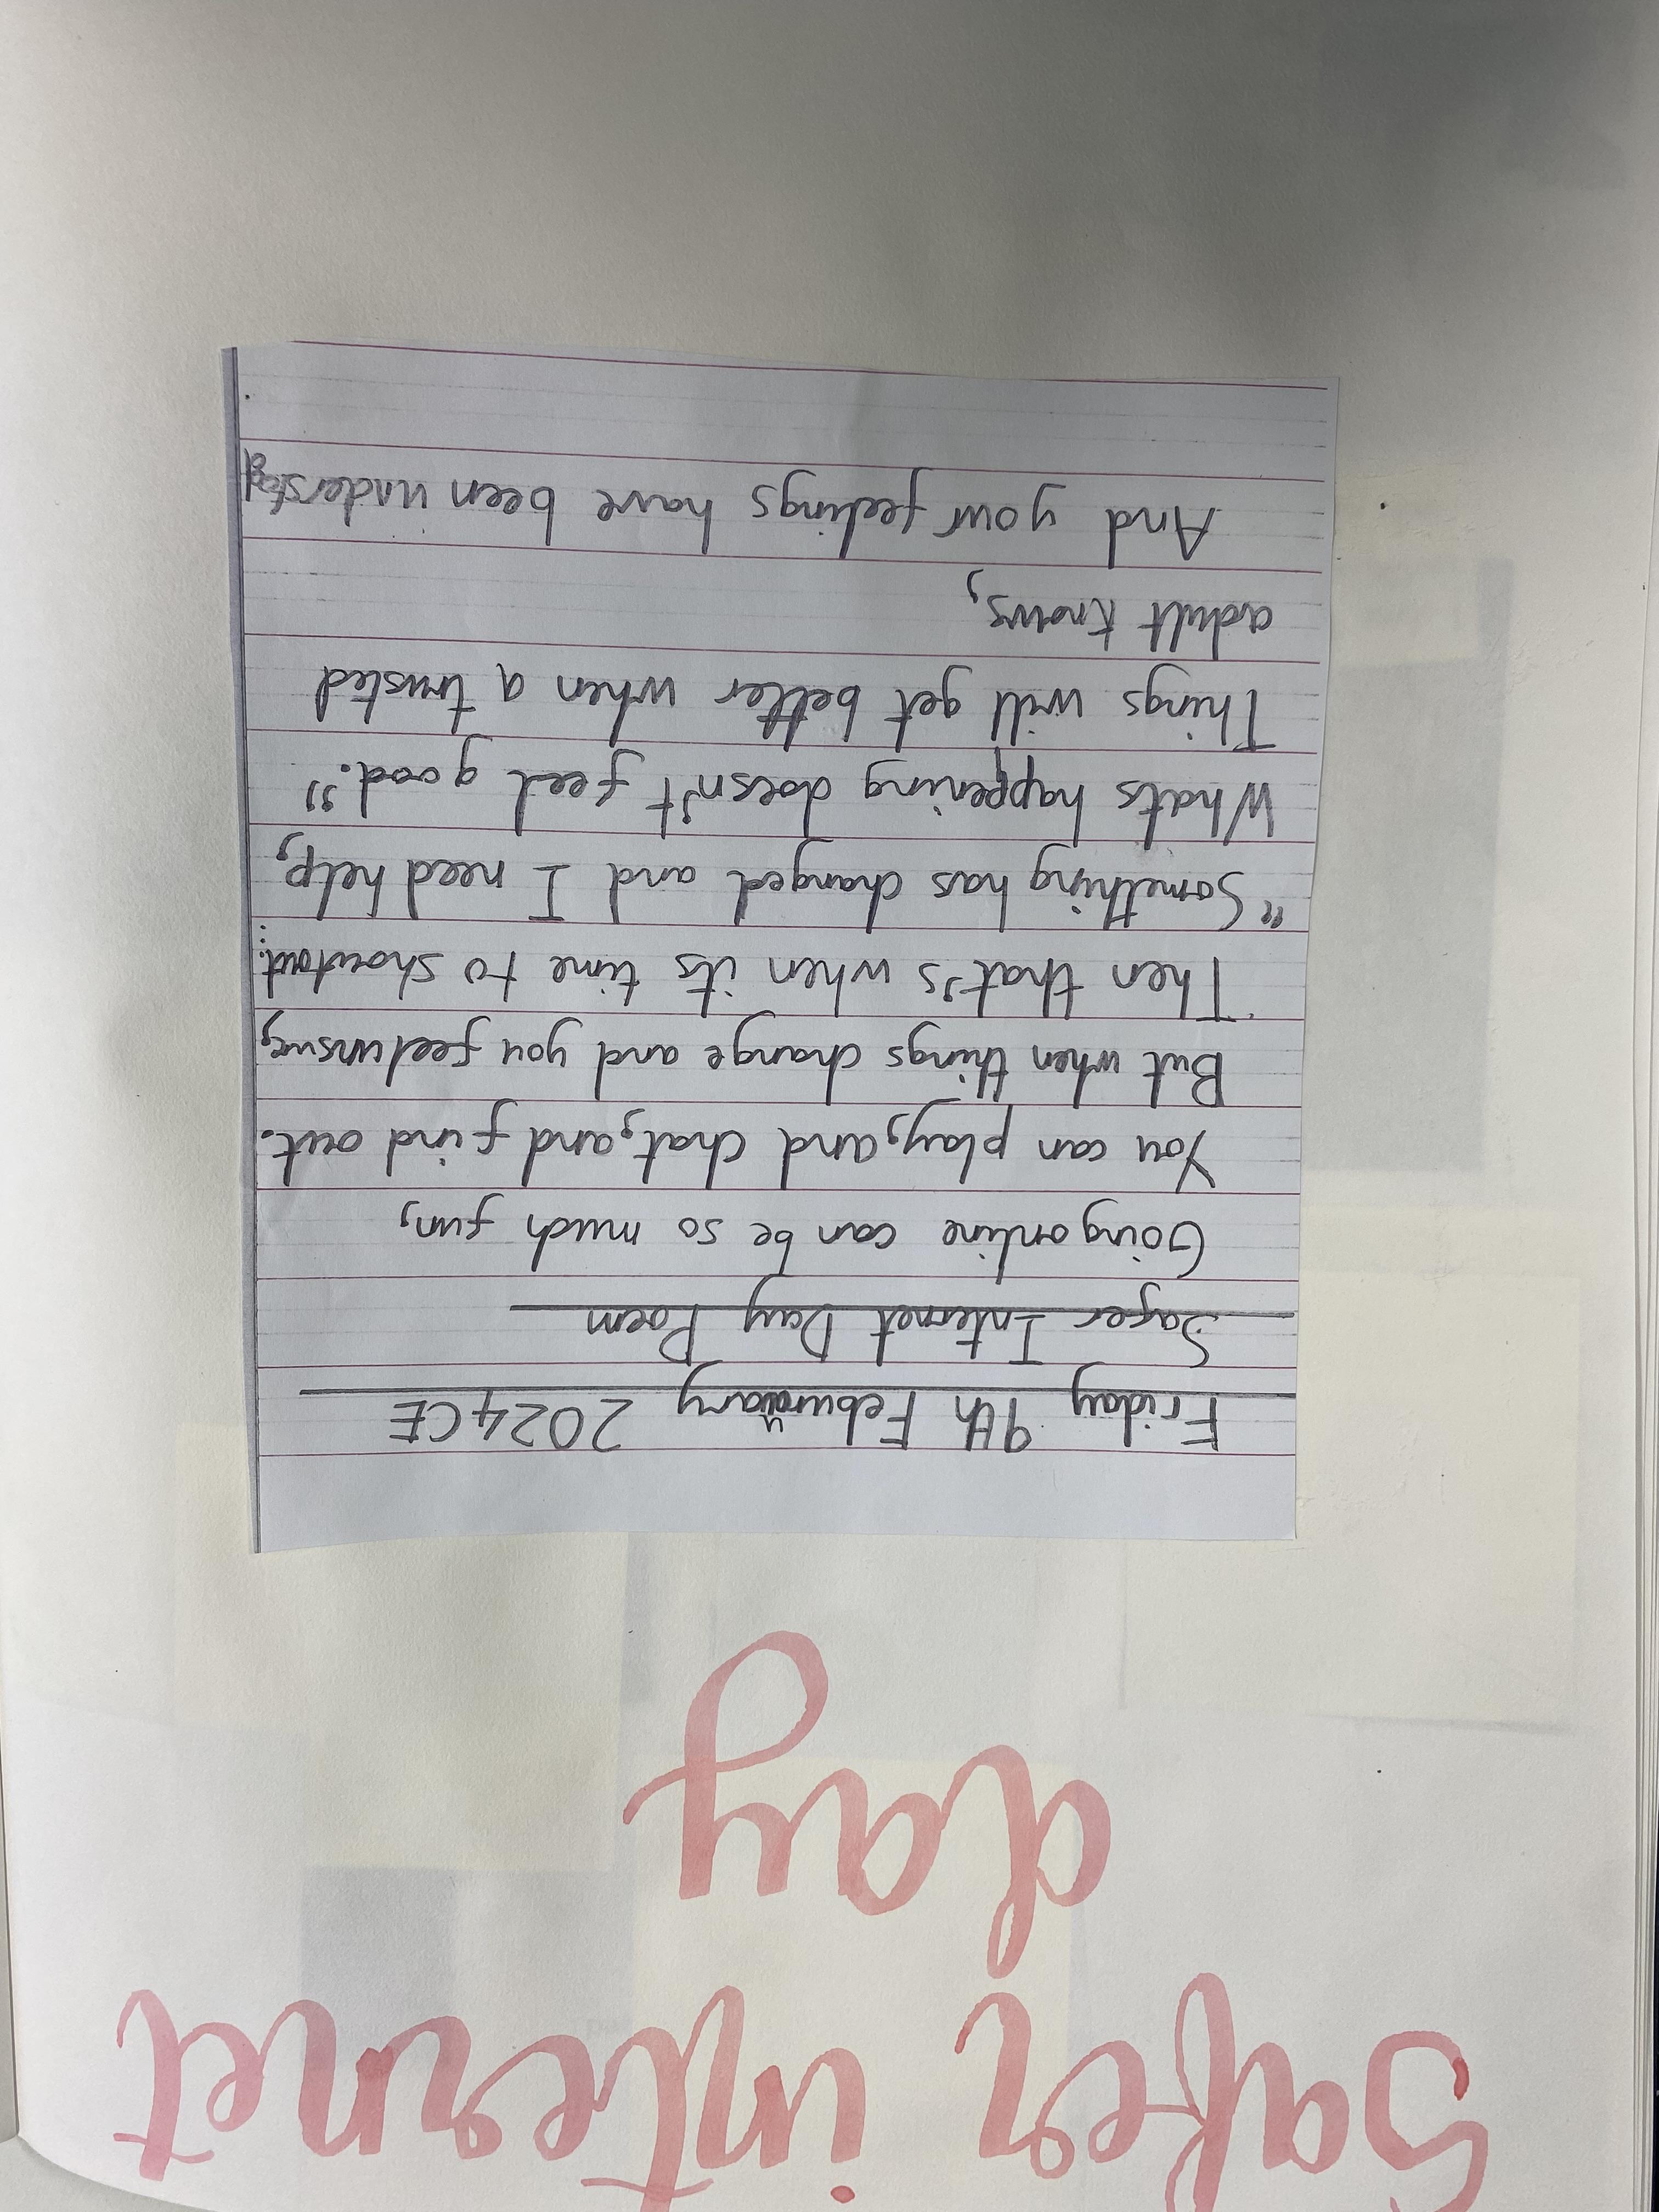 Safer internet
day
Friday 9th Feburary 2024 CE
Safer Internet Day Poem
Going online can be so much fun,
You can play, and chat, and find out.
But when things change and you feel unsure,
Then that's when its time to shout out:
"Something has changed and I need help,
Whats happening doesn't feel good."
Things will get better when a trusted
adult knows,
And your feelings have been understood